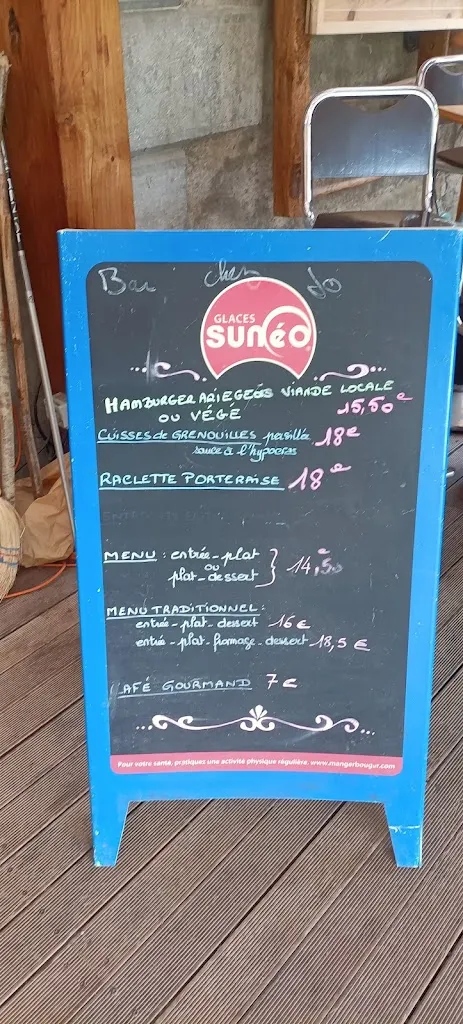 Bar chez Jo
GLACES
SUNÉO
HAMBURGER ARIEGEOIS VIANDE LOCALE
OU VÉGÉ 15,50€
CUISSES de GRENOUILLES persillée 18€
sauce à l'hypocras
RACLETTE PORTERAISE 18€
MENU : entrée - plat
ou
plat - dessert } 14,50€
MENU TRADITIONNEL :
entrée - plat - dessert 16€
entrée - plat - fromage - dessert 18,5 €
CAFÉ GOURMAND 7€
Pour votre santé, pratiquez une activité physique régulière. www.mangerbouger.com